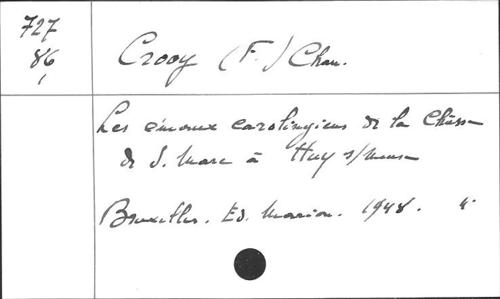 727
86
Crooy (F.) Chan.
Les émaux carolingiens de la Châsse
de S. Marc à Huy s/Meuse
Bruxelles. Ed. Marion. 1948. 4°